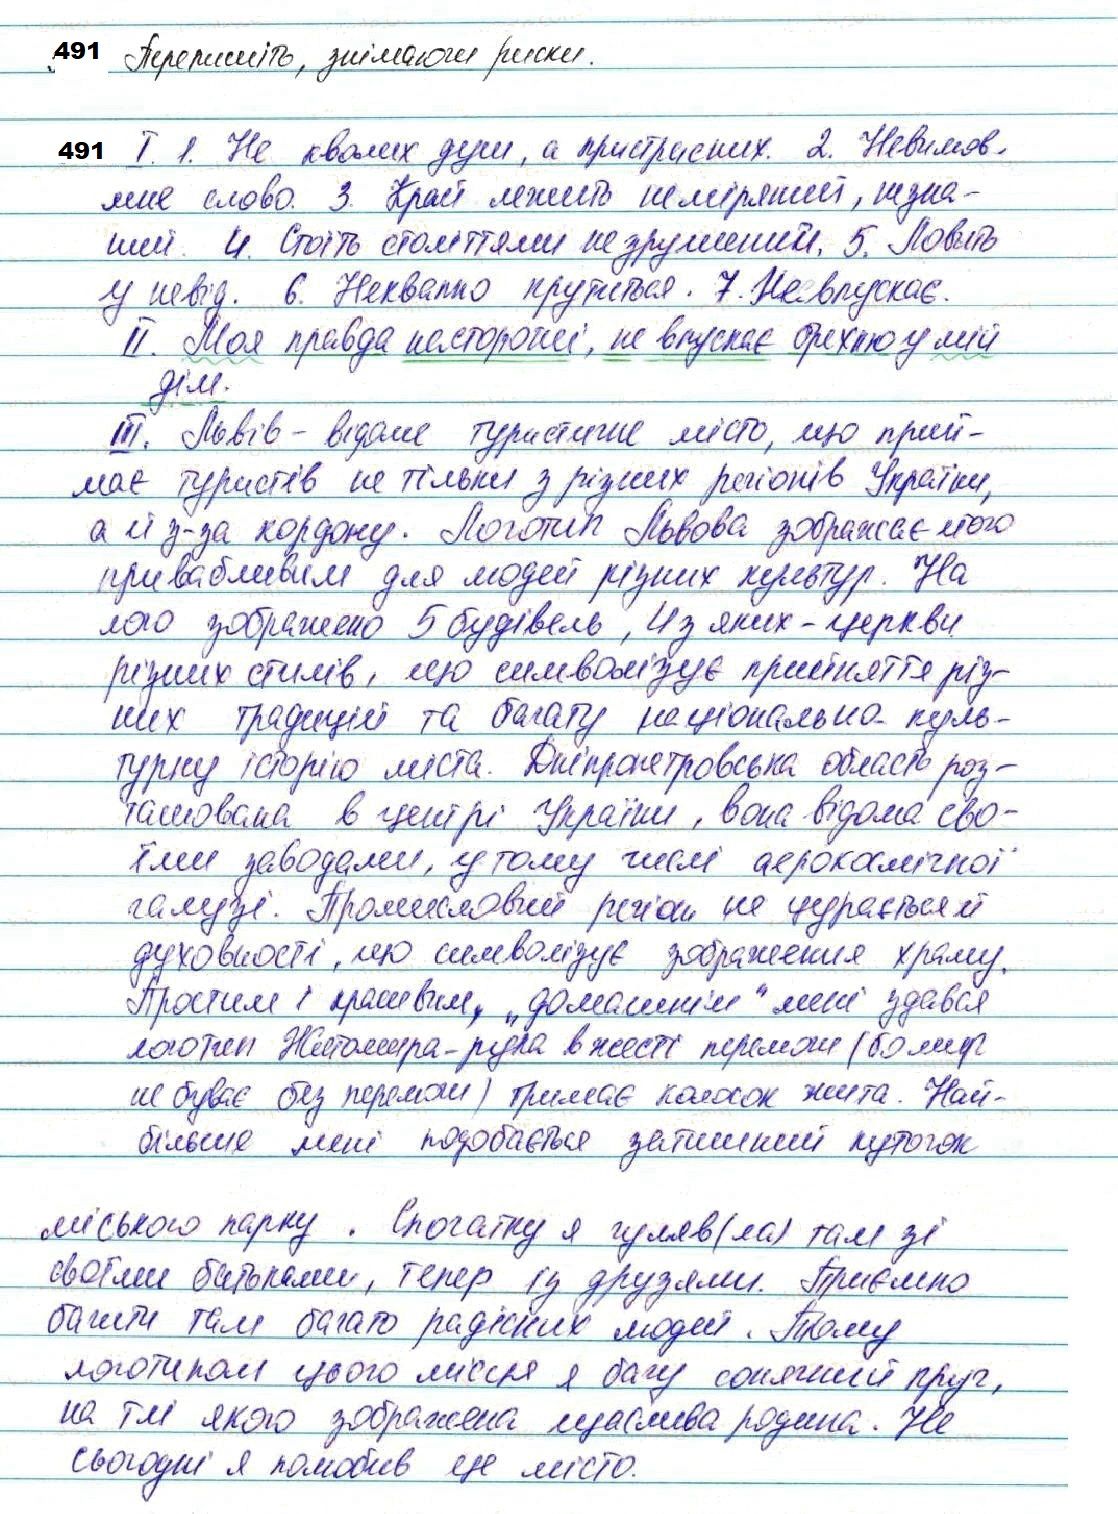 491 Перепишіть, знімаючи риски.
491 I. 1. Не кволих душ, а пристрасних. 2. Невимов-
мне слово. 3. Край лежить неміряний, незна-
ний. 4. Стоїть століттями незрушений. 5. Ловить
у невід. 6. Неквапно крутиться. 7. Не впускає.
II. Моя правда насторожі, не впускає брехню у мій
дім.
III. Львів – відоме туристичне місто, що прий-
має туристів не тільки з різних регіонів України,
а й з-за кордону. Логотип Львова зображає його
привабливим для людей різних культур. На
лого зображено 5 будівель, 4 з яких – церкви
різних стилів, що символізує прийняття різ-
них традицій та багату національно-куль-
турну історію міста. Дніпропетровська область роз-
ташована в центрі України, вона відома сво-
їми заводами, у тому числі аерокосмічної
галузі. Промисловий регіон не цурається й
духовності, що символізує зображення храму.
Простим і красивим, „домашнім“ мені здався
логотип Житомира – рука в жесті перемоги (
не буває без перемоги) тримає колосок жита. Най-
більше мені подобається затишний куточок
міського парку. Спочатку я гуляв(ла) там зі
своїми батьками, тепер із друзями. Приємно
бачити там багато радісних людей. Тому
логотипом цього місця я бачу сонячний круг,
на тлі якого зображена щаслива родина. Не
сьогодні я полюбив це місто.